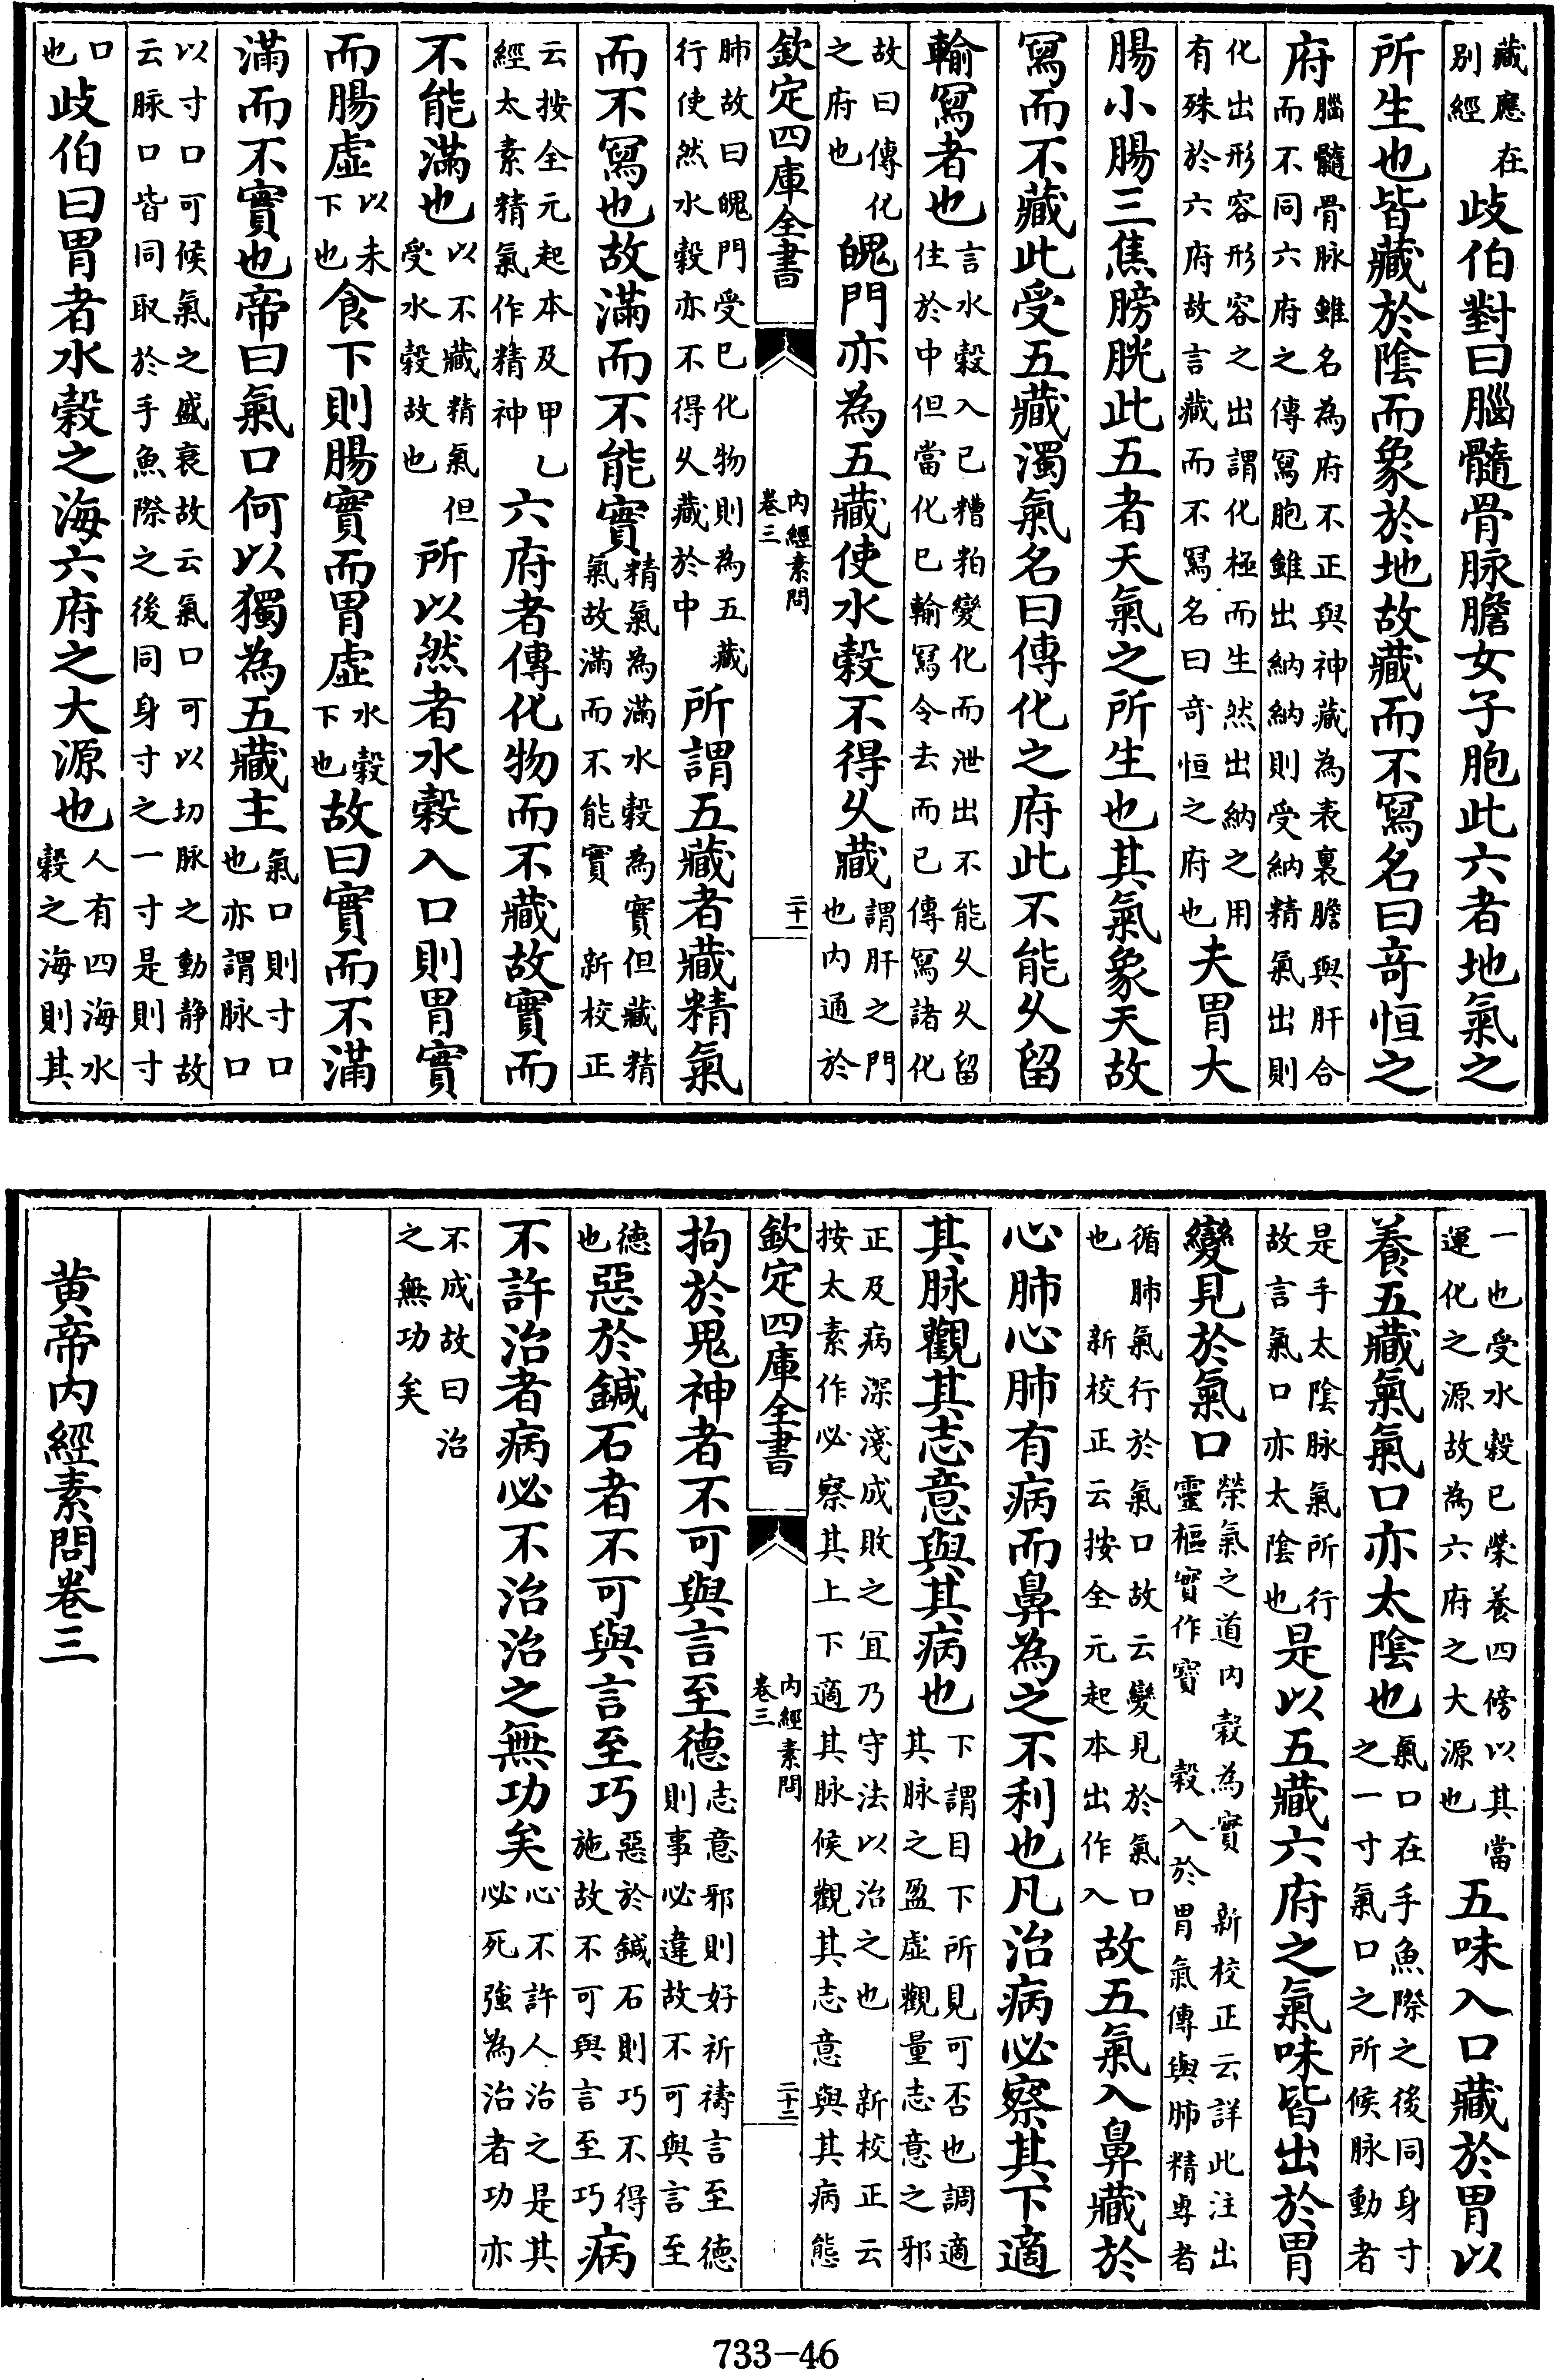 藏應在別經岐伯對曰腦髓骨脉膽女子胞此六者地氣之
所生也皆藏於陰而象於地故藏而不寫名曰竒恒之
府腦髓骨脉雖名為府不正與神藏為表裏膽與肝合而不同六府之傳寫胞雖出納納則受納精氣出則
化出形容形容之出謂化極而生然出納之用有殊於六府故言藏而不寫名曰竒恒之府也夫胃大
腸小腸三焦膀胱此五者天氣之所生也其氣象天故
寫而不藏此受五藏濁氣名曰傳化之府此不能乆留
輸寫者也言水穀入已糟粕變化而泄出不能乆乆留住於中但當化已輸寫令去而已傳寫諸化
故曰傳化之府也魄門亦為五藏使水穀不得乆藏謂肝之門也内通於
欽定四庫全書
内經素問
卷三
二十一
肺故曰魄門受已化物則為五藏行使然水穀亦不得乆藏於中所謂五藏者藏精氣
而不寫也故滿而不能實精氣為滿水穀為實但藏精氣故滿而不能實 新校正
云按全元起本及甲乙經太素精氣作精神六府者傳化物而不藏故實而
不能滿也以不藏精氣但受水穀故也所以然者水穀入口則胃實
而腸虛以未下也食下則腸實而胃虛水穀下也故曰實而不滿
滿而不實也帝曰氣口何以獨為五藏主氣口則寸口也亦謂脉口
以寸口可候氣之盛衰故云氣口可以切脉之動静故云脉口皆同取於手魚際之後同身寸之一寸是則寸
口也歧伯曰胃者水穀之海六府之大源也人有四海水穀之海則其
一也受水穀已榮養四傍以其當運化之源故為六府之大源也五味入口藏於胃以
養五藏氣氣口亦太陰也氣口在手魚際之後同身寸之一寸氣口之所候脉動者
是手太陰脉氣所行故言氣口亦太陰也是以五藏六府之氣味皆出於胃
變見於氣口榮氣之道内穀為實 新校正云詳此注出靈樞實作寳 穀入於胃氣傳與肺精專者
循肺氣行於氣口故云變見於氣口也 新校正云按全元起本出作入故五氣入鼻藏於
心肺心肺有病而鼻為之不利也凡治病必察其下適
其脉觀其志意與其病也下謂目下所見可否也調適其脉之盈虛觀量志意之邪
正及病深淺成敗之宜乃守法以治之也 新校正云按太素作必察其上下適其脉候觀其志意與其病態
欽定四庫全書
内經素問
卷三
二十二
拘於鬼神者不可與言至德志意邪則好祈禱言至德則事必違故不可與言至
德也惡於鍼石者不可與言至巧惡於鍼石則巧不得施故不可與言至巧病
不許治者病必不治治之無功矣心不許人治之是其必死強為治者功亦
不成故曰治之無功矣
黄帝内經素問卷三
733-46